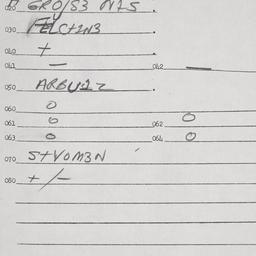 020 GRO/S3 NIS .
030 FELCHIN3
040 + .
041 — 042 —
050 ARBU1Z .
060 O
061 O 062 O
063 O 064 O
070 S+VOM3N
080 + /-